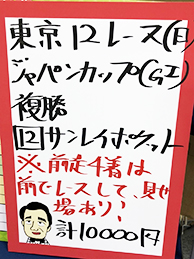 東京12レース(日)
ジャパンカップ(GI)
複勝
12 サンレイポケット
※前走4着は
前でレースして、見せ
場あり!
計10000円